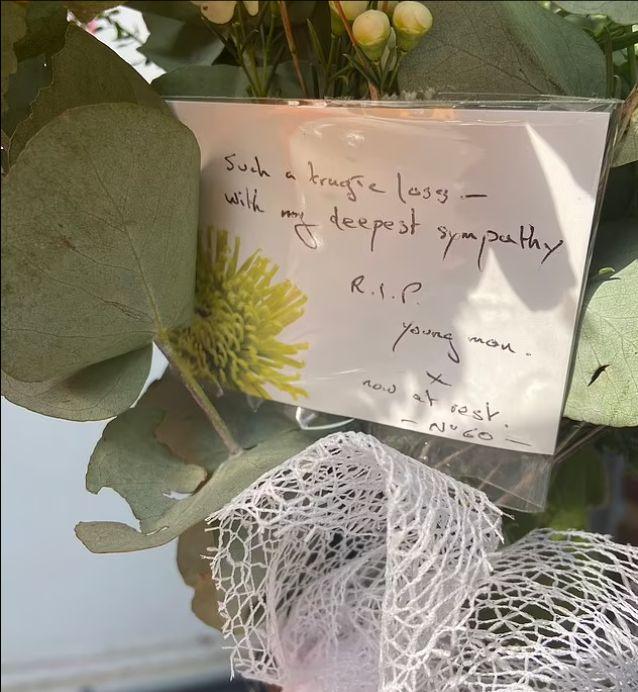 Such a tragic loss —
with my deepest sympathy
R.I.P.
young man.
x
now at rest.
– Nº 60 –